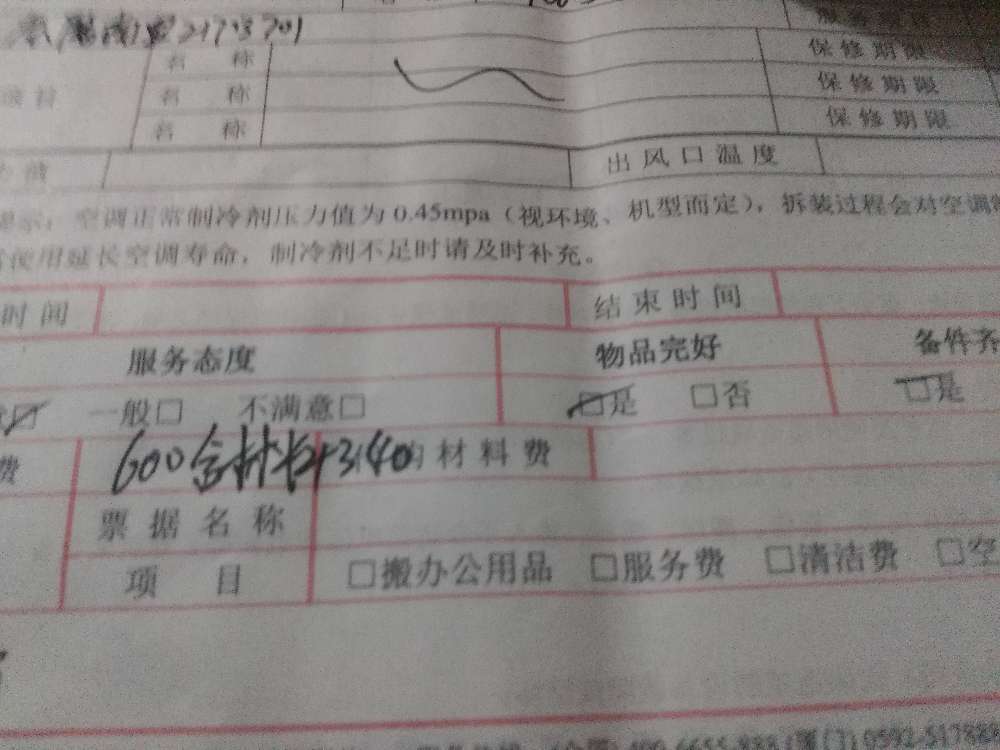 名 称 保修期限
名 称 保修期限
名 称 保修期限
出风口温度
空调正常制冷剂压力值为0.45mpa（视环境、机型而定），拆装过程会对空调
使用延长空调寿命，制冷剂不足时请及时补充。
时间 结束时间
服务态度 物品完好 备件齐
一般□ 不满意□ □是 □否 □是
费 600含材料+340 的材料费
票据名称
项 目 □搬办公用品 □服务费 □清洁费 □空